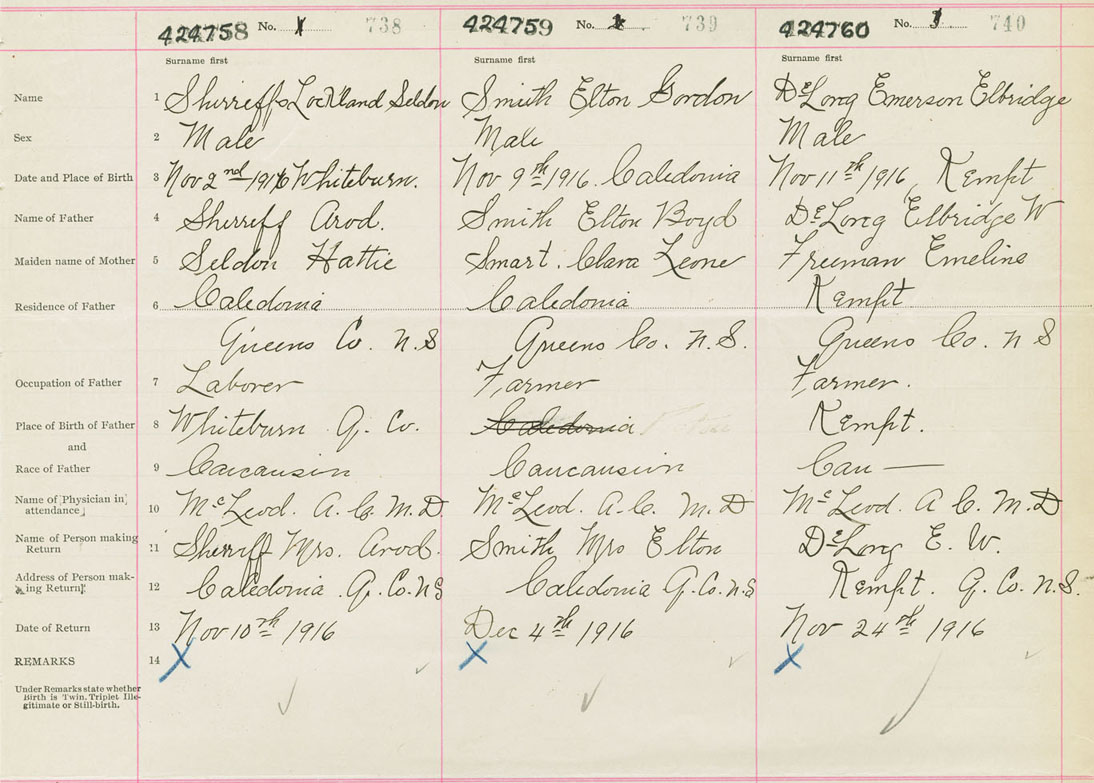 424758 No. 1 738 424759 No. 2 739 424760 No. 3 740
Surname first Surname first Surname first
Name 1 Shirreffs Lockland Seldon Smith Elton Gordon DeLong Emerson Elbridge
Sex 2 Male Male Male
Date and Place of Birth 3 Nov 2nd 1916 Whiteburn. Nov 9th 1916. Caledonia Nov 11th 1916, Kempt
Name of Father 4 Sherreff Arod. Smith Elton Boyd DeLong Elbridge W
Maiden name of Mother 5 Seldon Hattie Smart. Clara Leone Freeman Emeline
Residence of Father 6 Caledonia Caledonia Kempt
Queens Co. N.S Queens Co. N.S. Queens Co. N S
Occupation of Father 7 Laborer Farmer Farmer.
Place of Birth of Father 8 Whiteburn Q. Co. Caledonia Kempt.
and
Race of Father 9 Caucausin Caucausion Cau —
Name of Physician in attendance 10 McLeod. A. C. M.D. McLeod. A.C. M.D McLeod. A C. M.D
Name of Person making
Return 11 Sherriff Mrs. Arod. Smith Mrs Elton DeLong E. W.
Address of Person mak-
ing Return 12 Caledonia Q. Co. N S Caledonia Q. Co. N.S Kempt. Q. Co. N.S.
Date of Return 13 Nov 10th 1916 Dec 4th 1916 Nov 24th 1916
REMARKS 14 X X X
Under Remarks state whether
Birth is Twin, Triplet Ille-
gitimate or Still-birth.